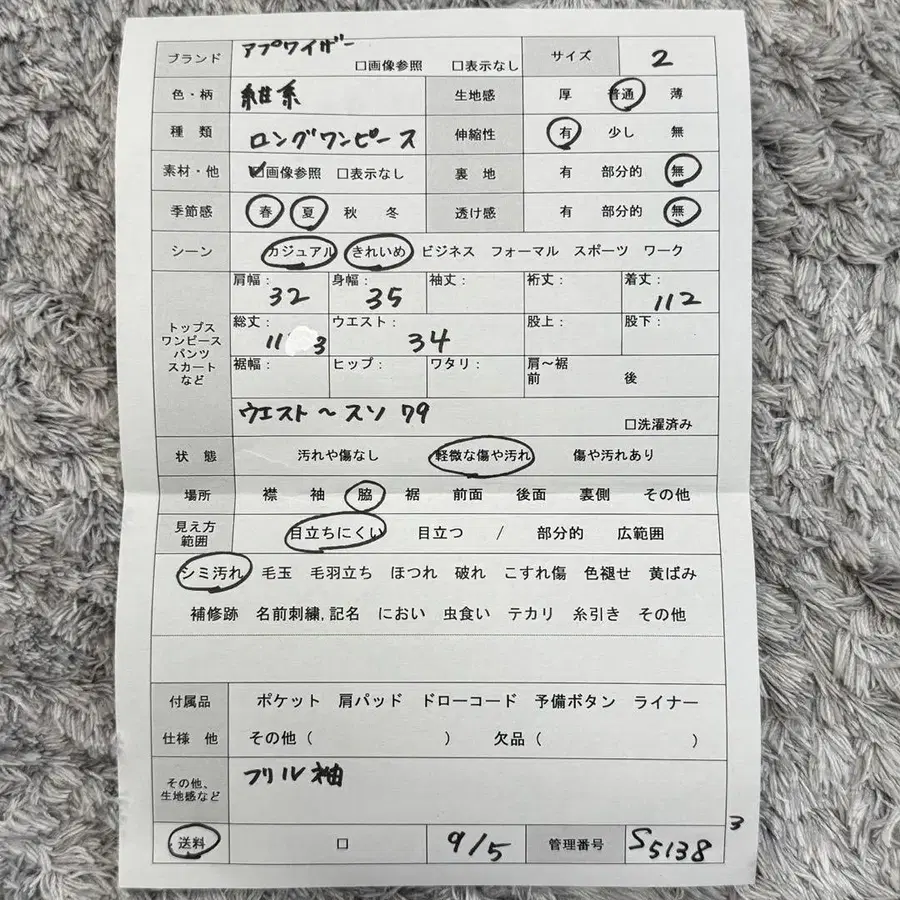 ブランド アプワイザー □画像参照 □表示なし サイズ 2
色・柄 紺系 生地感 厚 普通 薄
種類 ロングワンピース 伸縮性 有 少し 無
素材・他 ☑画像参照 □表示なし 裏地 有 部分的 無
季節感 春 夏 秋 冬 透け感 有 部分的 無
シーン カジュアル きれいめ ビジネス フォーマル スポーツ ワーク
トップス
ワンピース
パンツ
スカート
など
肩幅: 32 身幅: 35 袖丈: 裄丈: 着丈: 112
総丈: 11 3 ウエスト: 34 股上: 股下:
裾幅: ヒップ: ワタリ: 肩〜裾
前 後
ウエスト〜スソ 79 □洗濯済み
状態 汚れや傷なし 軽微な傷や汚れ 傷や汚れあり
場所 襟 袖 脇 裾 前面 後面 裏側 その他
見え方
範囲 目立ちにくい 目立つ / 部分的 広範囲
シミ汚れ 毛玉 毛羽立ち ほつれ 破れ こすれ傷 色褪せ 黄ばみ
補修跡 名前刺繍,記名 におい 虫食い テカリ 糸引き その他
付属品 ポケット 肩パッド ドローコード 予備ボタン ライナー
仕様 他 その他( ) 欠品( )
その他、
生地感など フリル袖
送料 □ 9/5 管理番号 S5138 3